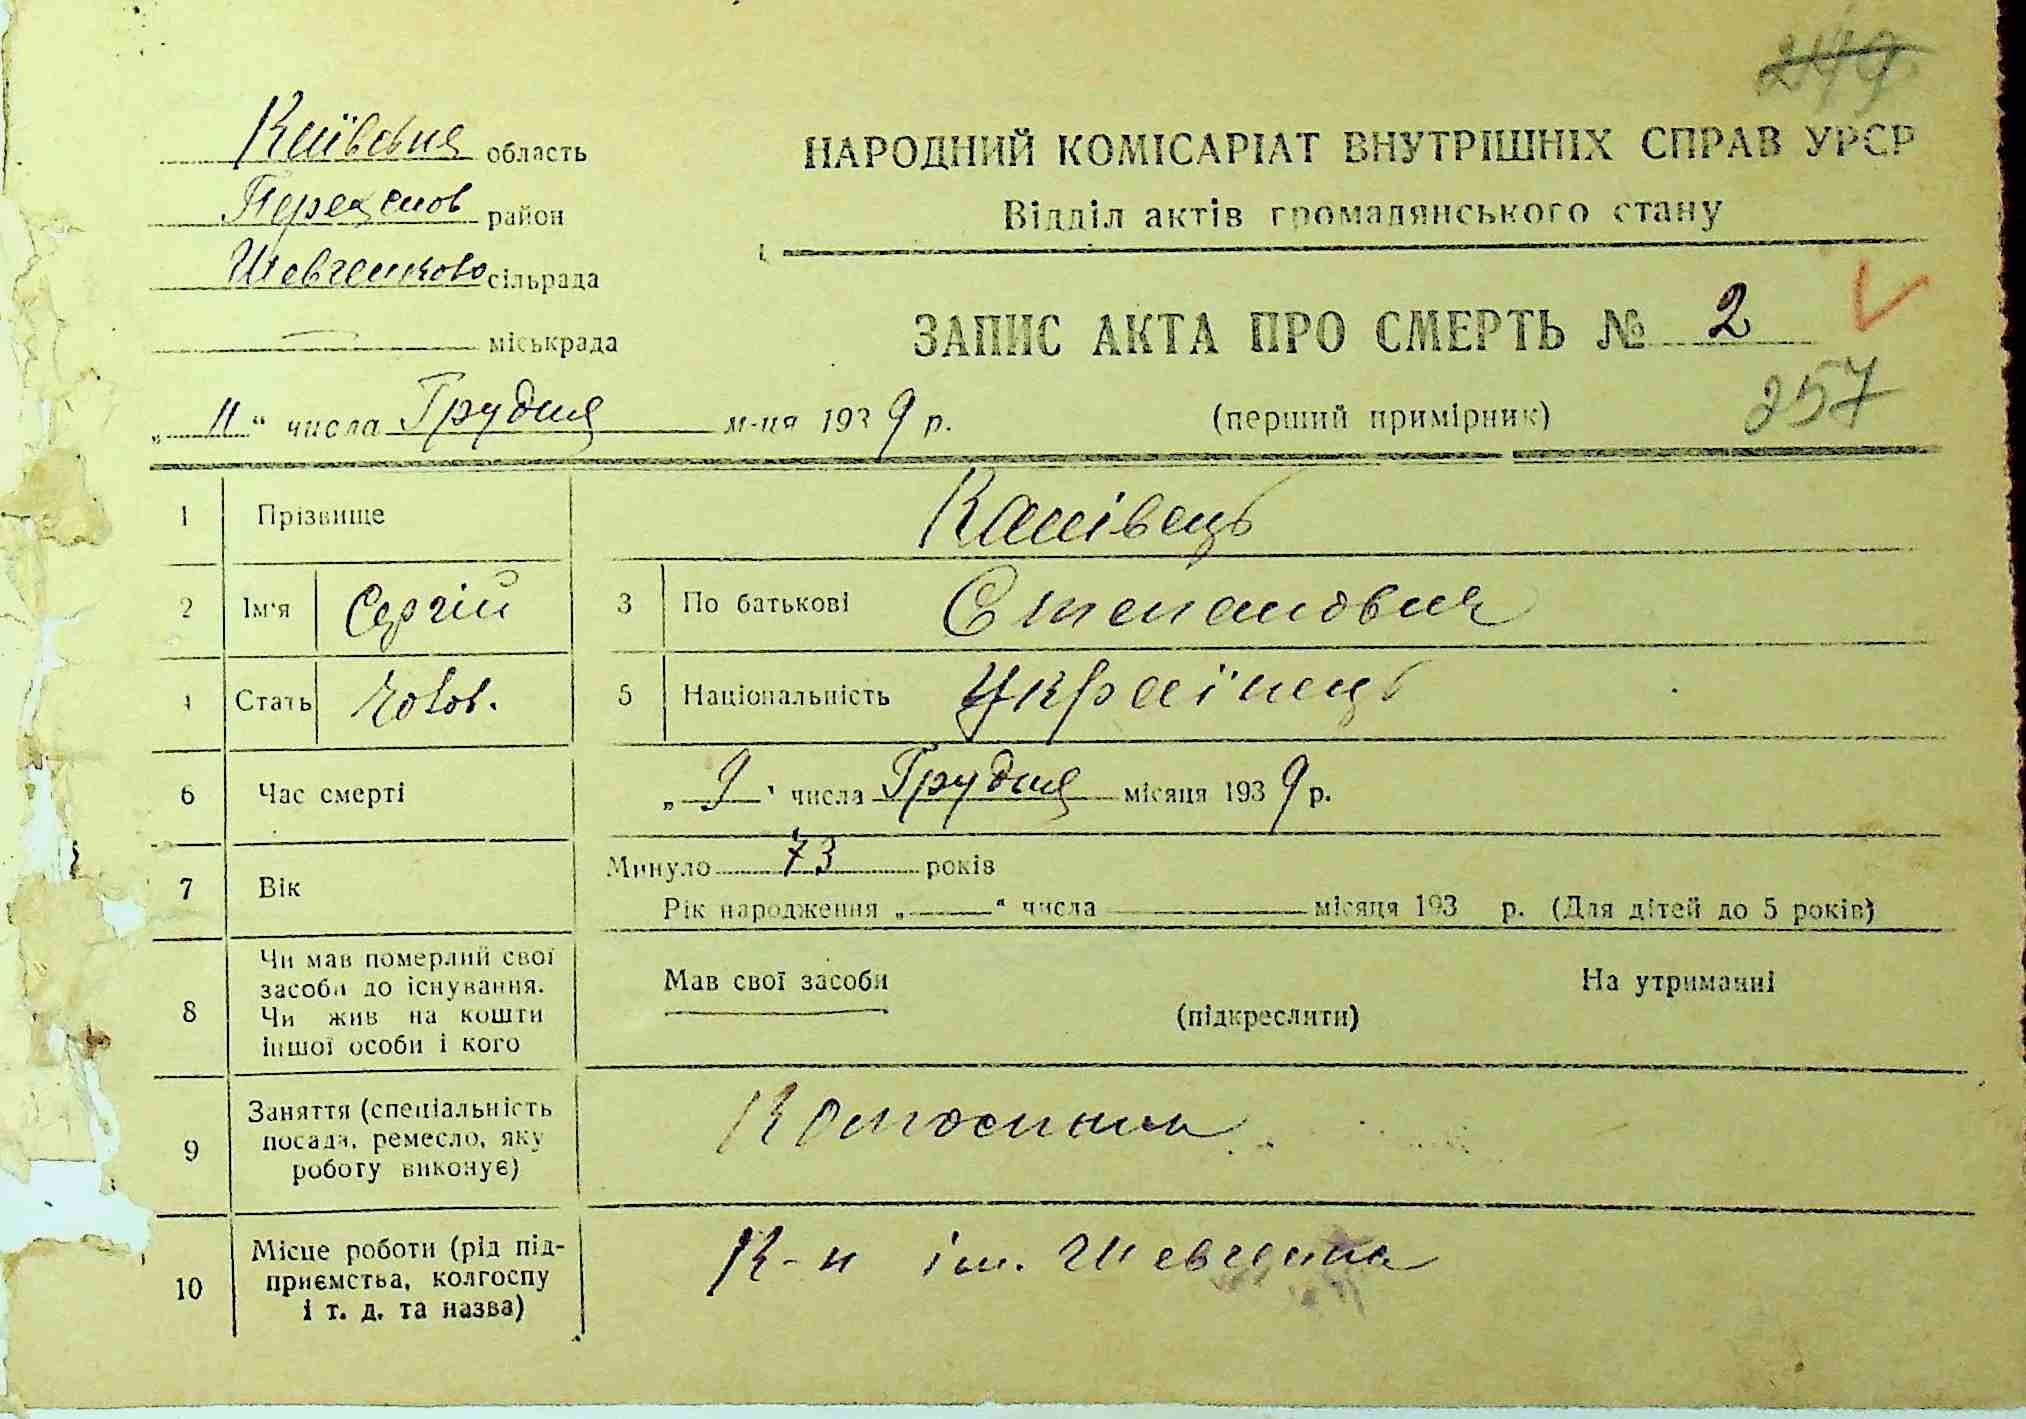 249
Київська область
НАРОДНИЙ КОМІСАРІАТ ВНУТРІШНІХ СПРАВ УРСР
район
Відділ актів громадянського стану
Шевченково сільрада
міськрада
ЗАПИС АКТА ПРО СМЕРТЬ № 2
„ 11 “ числа Грудня м-ця 1939 р.
(перший примірник)
257
1 Прізвище Канівець
2 Ім'я Сергій 3 По батькові Степанович
4 Стать Чолов. 5 Національність Українець
6 Час смерті „ 9 “ числа Грудня місяця 1939 р.
7 Вік Минуло 73 років
Рік народження „ “ числа місяця 193 р. (Для дітей до 5 років)
8 Чи мав померлий свої
засоби до існування.
Чи жив на кошти
іншої особи і кого
Мав свої засоби
(підкреслити)
На утриманні
9 Заняття (спеціальність
посада, ремесло, яку
роботу виконує)
10 Місце роботи (рід під-
приємства, колгоспу
і т. д. та назва)
К-п ім. Шевченка